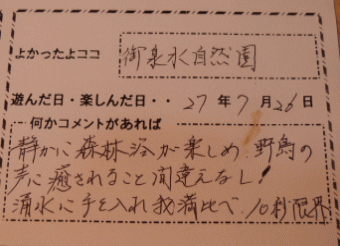 よかったよココ 御泉水自然園
遊んだ日・楽しんだ日・・ 27年7月26日
何かコメントがあれば
静かに森林浴が楽しめ 野鳥の
声に癒されること間違えなし!
清水に手を入れ我満比べ 10秒限界